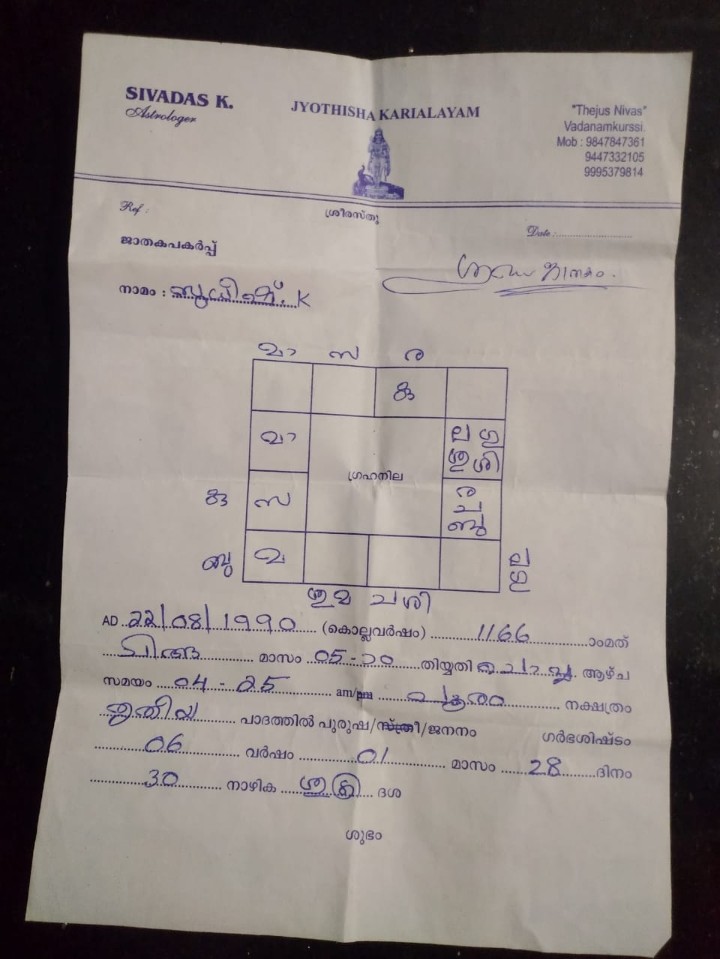 SIVADAS K.
Astrologer
JYOTHISHA KARIALAYAM
"Thejus Nivas"
Vadanamkurssi.
Mob : 9847847361
9447332105
9995379814
Ref :
ശ്രീരസ്തു
Date :
ജാതകപകർപ്പ്
നാമം : K
മാ സ ര
കു
മാ ല ഗു
ഗ്രഹനില
ശു ശി
കു സ ര
ച
ബു
ബു മ
AD 22/08/1990 (കൊല്ലവർഷം) 1166 ാംമത്
ചിങ്ങ മാസം 05-20 തിയ്യതി ചൊവ്വ ആഴ്ച
സമയം 04-25 am/pm പൂരം നക്ഷത്രം
തൃതീയ പാദത്തിൽ പുരുഷ/സ്ത്രീ/ജനനം ഗർഭശിഷ്ടം
06 വർഷം 01 മാസം 28 ദിനം
30 നാഴിക ശുക്ര ദശ
ശുഭം